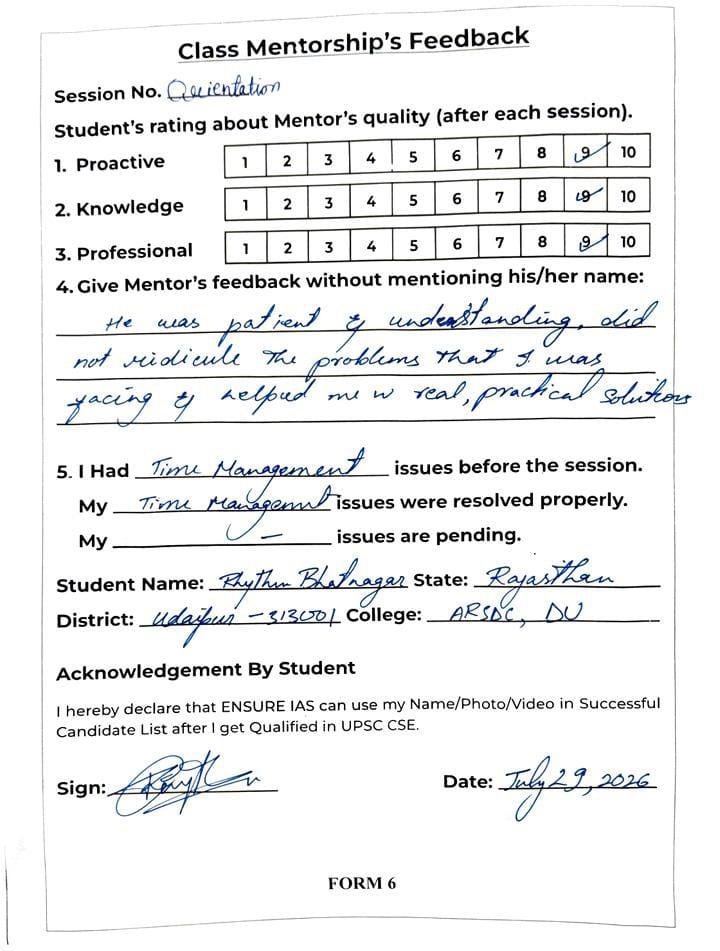 Class Mentorship's Feedback
Session No. Orientation
Student's rating about Mentor's quality (after each session).
1. Proactive 1 2 3 4 5 6 7 8 9 10
2. Knowledge 1 2 3 4 5 6 7 8 9 10
3. Professional 1 2 3 4 5 6 7 8 9 10
4. Give Mentor's feedback without mentioning his/her name:
He was patient & understanding, did
not ridicule the problems that I was
facing & helped me w real, practical solutions
5. I Had Time Management issues before the session.
My Time Management issues were resolved properly.
My — issues are pending.
Student Name: Rhythm Bhatnagar State: Rajasthan
District: Udaipur - 313001 College: ARSDC, DU
Acknowledgement By Student
I hereby declare that ENSURE IAS can use my Name/Photo/Video in Successful
Candidate List after I get Qualified in UPSC CSE.
Sign: Date: July 29, 2026
FORM 6